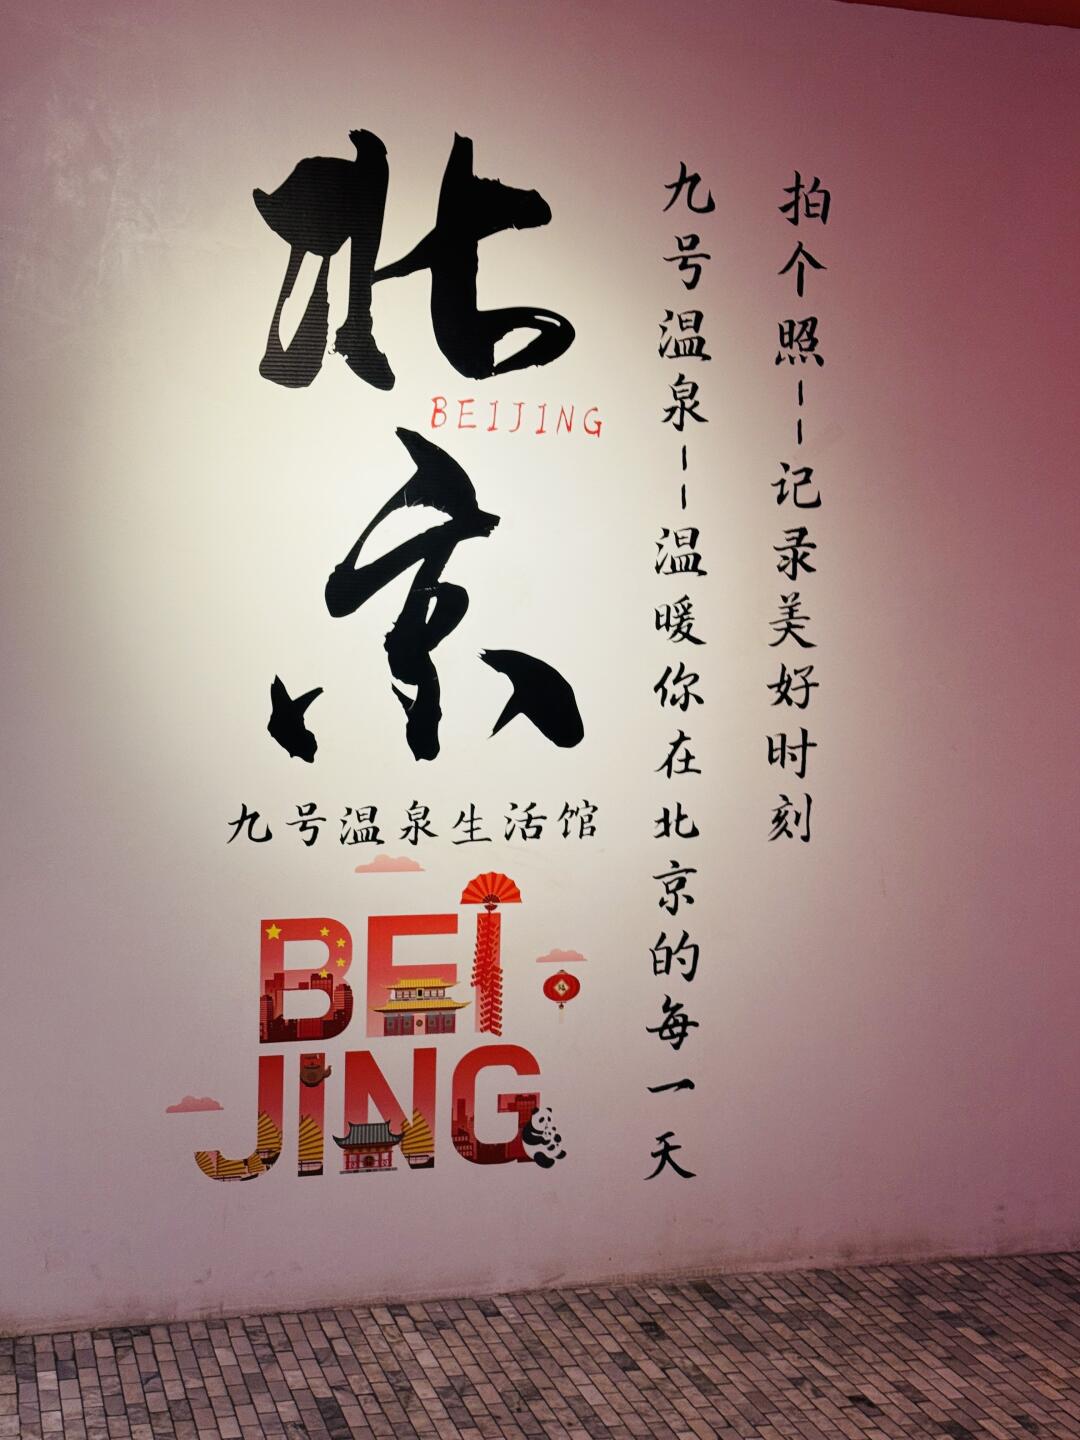 北京
BEIJING
九号温泉生活馆
BEI
JING
拍个照--记录美好时刻
九号温泉--温暖你在北京的每一天